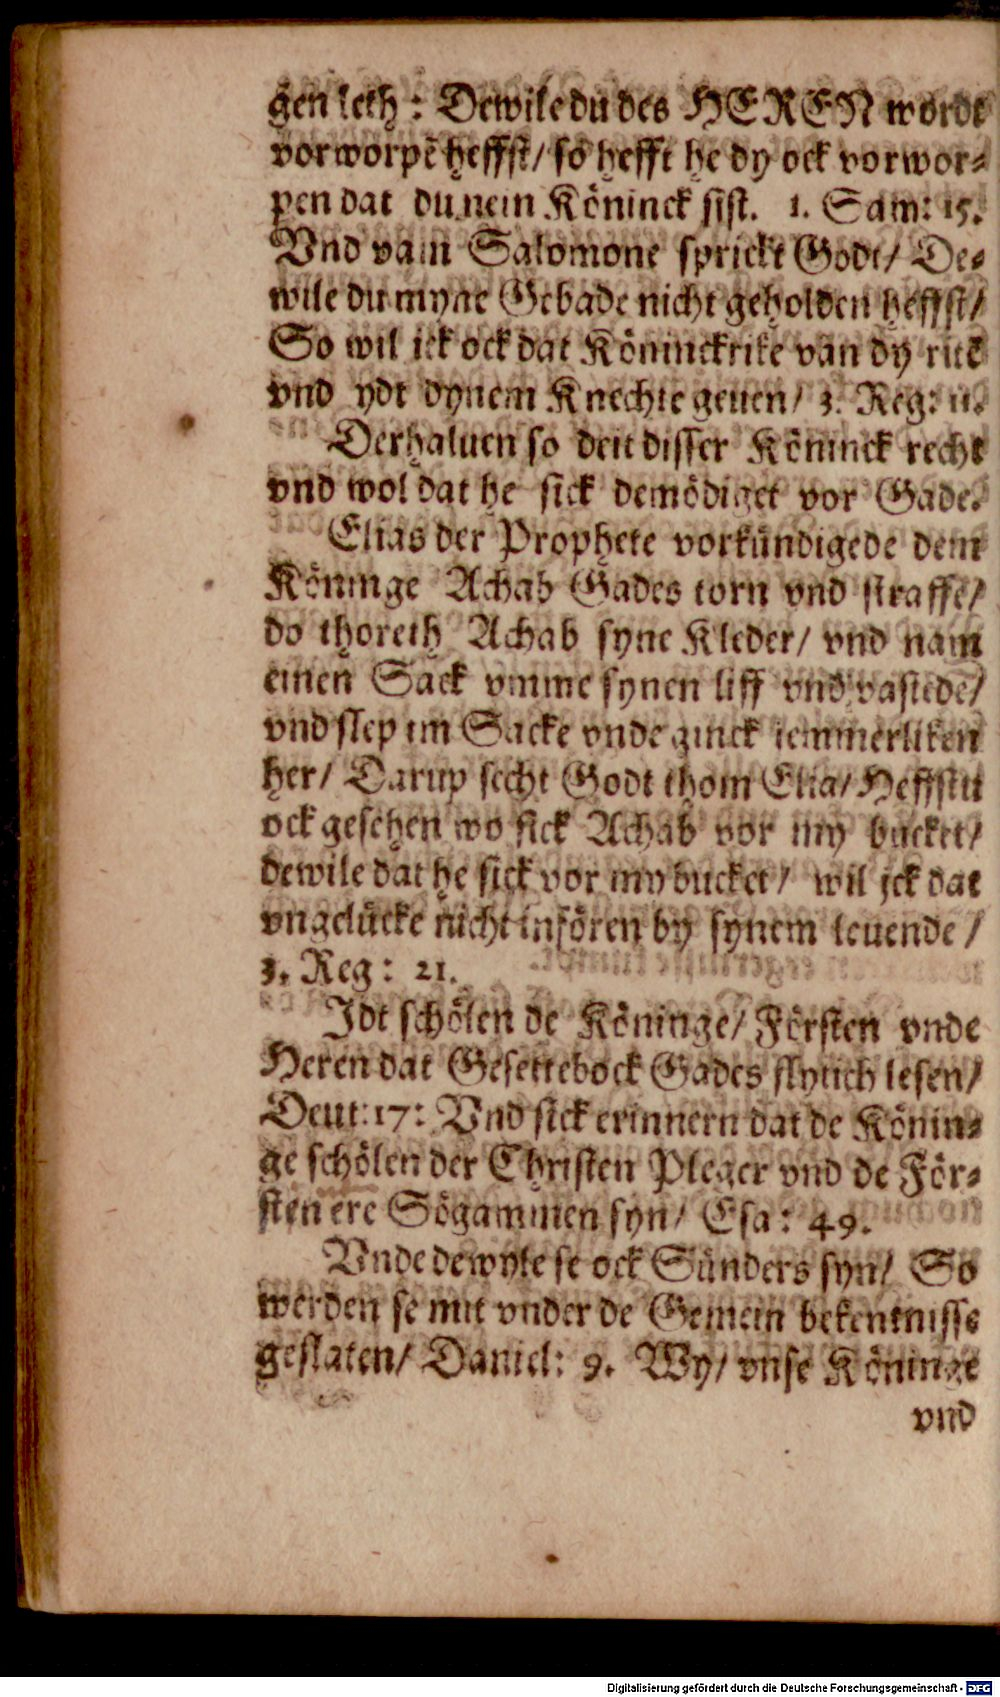 gen leth : Dewile du des HEREN wordt
vorworpē heffst/ so hefft he dy ock vorwor⸗
pen dat du nein Köninck sist. 1. Sam: 15.
Vnd vam Salomone sprickt Godt/ De⸗
wile du myne Gebade nicht geholden heffst/
So wil ick ock dat Köninckrike van dy ritē
vnd ydt dynem Knechte geuen/ 3. Reg: 11.
Derhaluen so deit disser Köninck recht
vnd wol dat he sick demödiget vor Gade.
Elias der Prophete vorkündigede dem
Köninge Achab Gades torn vnd straffe/
do thoreth Achab syne Kleder/ vnd nam
einen Sack vmme synen liff vnd vastede/
vnd slep im Sacke vnde ginck iemmerliken
her/ Darup secht Godt thom Elia/ Heffstu
ock gesehen wo sick Achab vor my bucket/
dewile dat he sick vor my bucket/ wil jck dat
vngelücke nicht infören by synem leuende /
3. Reg: 21.
Jdt schölen de Köninge/ Försten vnde
Heren dat Gesettebock Gades flytich lesen/
Deut: 17: Vnd sick erinnern dat de Könin⸗
ge schölen der Christen Pleger vnd de För⸗
sten ere Sögammen syn/ Esa: 49.
Vnde dewyle se ock Sünders syn/ So
werden se mit vnder de Gemein bekentnisse
geslaten/ Daniel: 9. Wy/ vnse Köninge
vnd
Digitalisierung gefördert durch die Deutsche Forschungsgemeinschaft - DFG